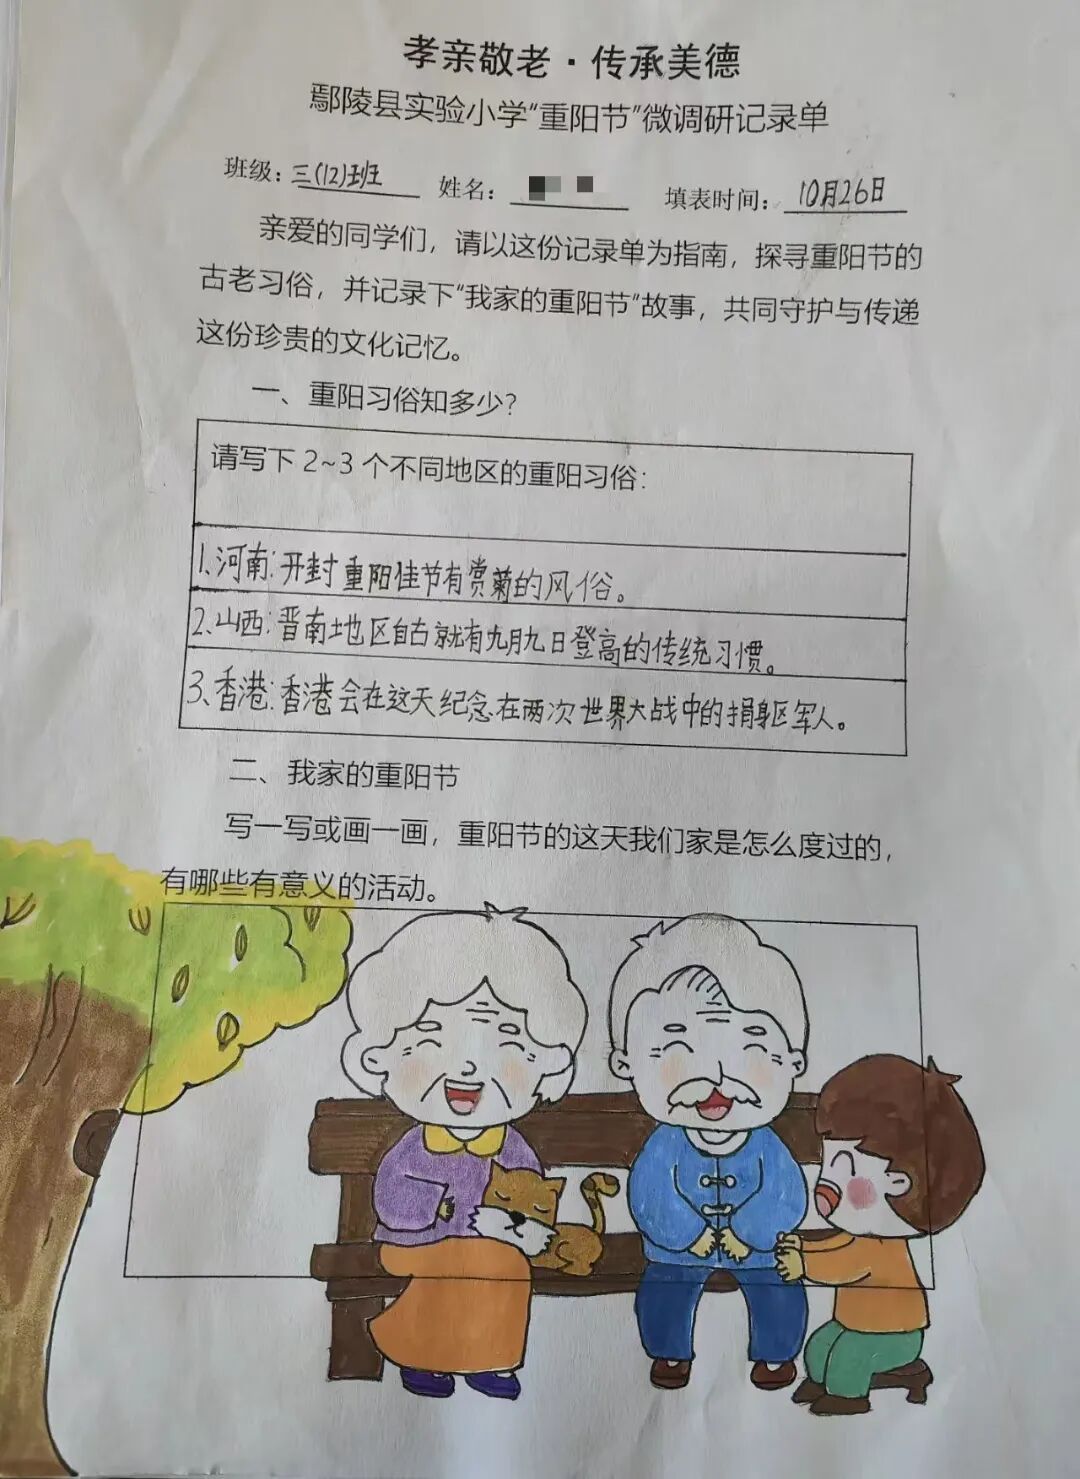 孝亲敬老·传承美德
鄢陵县实验小学“重阳节”微调研记录单
班级：三(12)班 姓名： 填表时间：10月26日
亲爱的同学们，请以这份记录单为指南，探寻重阳节的
古老习俗，并记录下“我家的重阳节”故事，共同守护与传递
这份珍贵的文化记忆。
一、重阳习俗知多少？
请写下 2~3 个不同地区的重阳习俗：
1.河南：开封重阳佳节有赏菊的风俗。
2.山西：晋南地区自古就有九月九日登高的传统习惯。
3.香港：香港会在这天纪念在两次世界大战中的捐躯军人。
二、我家的重阳节
写一写或画一画，重阳节的这天我们家是怎么度过的，
有哪些有意义的活动。